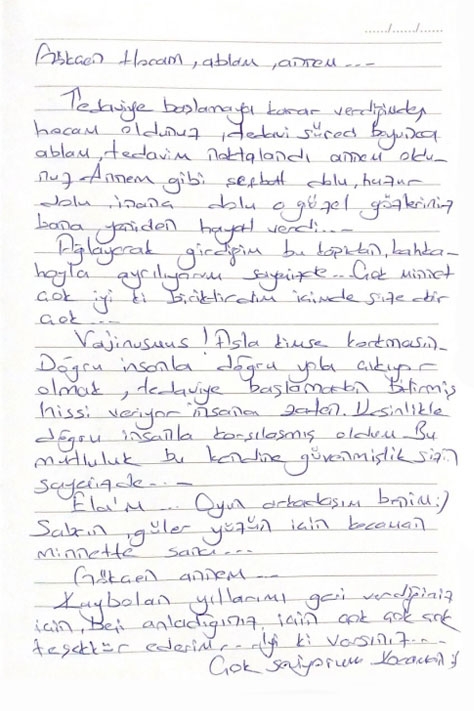 ....../....../......
Gökçen Hocam, ablam, annem...
Tedaviye başlamaya karar verdiğimde,
hocam oldunuz, tedavi süreci boyunca
ablam, tedavim noktalandı annem oldu-
nuz. Annem gibi şefkat dolu, huzur
dolu, inanç dolu o güzel gözleriniz
bana yeniden hayat verdi...
Ağlayarak girdiğim bu kapıdan, kahka-
hayla ayrılıyorum sayenizde... Çok minnet
çok iyi ki biriktirdim içimde size dair
çok...
Vajinusmus! Asla kimse korkmasın.
Doğru insanla doğru yola çıkıyor
olmak, tedaviye başlamadan bitirmiş
hissi veriyor insana zaten. Kesinlikle
doğru insanla karşılaşmış oldum. Bu
mutluluk bu kendine güvenmişlik sizin
sayenizde...
Ela'm... Oyun arkadaşım benim :)
Sabrın, güler yüzün için kocaman
minnette sana...
Gökçen annem...
Kaybolan yıllarımı geri verdiğiniz
için, beni anladığınız için çok çok çok
teşekkür ederim... İyi ki varsınız...
Çok seviyorum kocaman :)